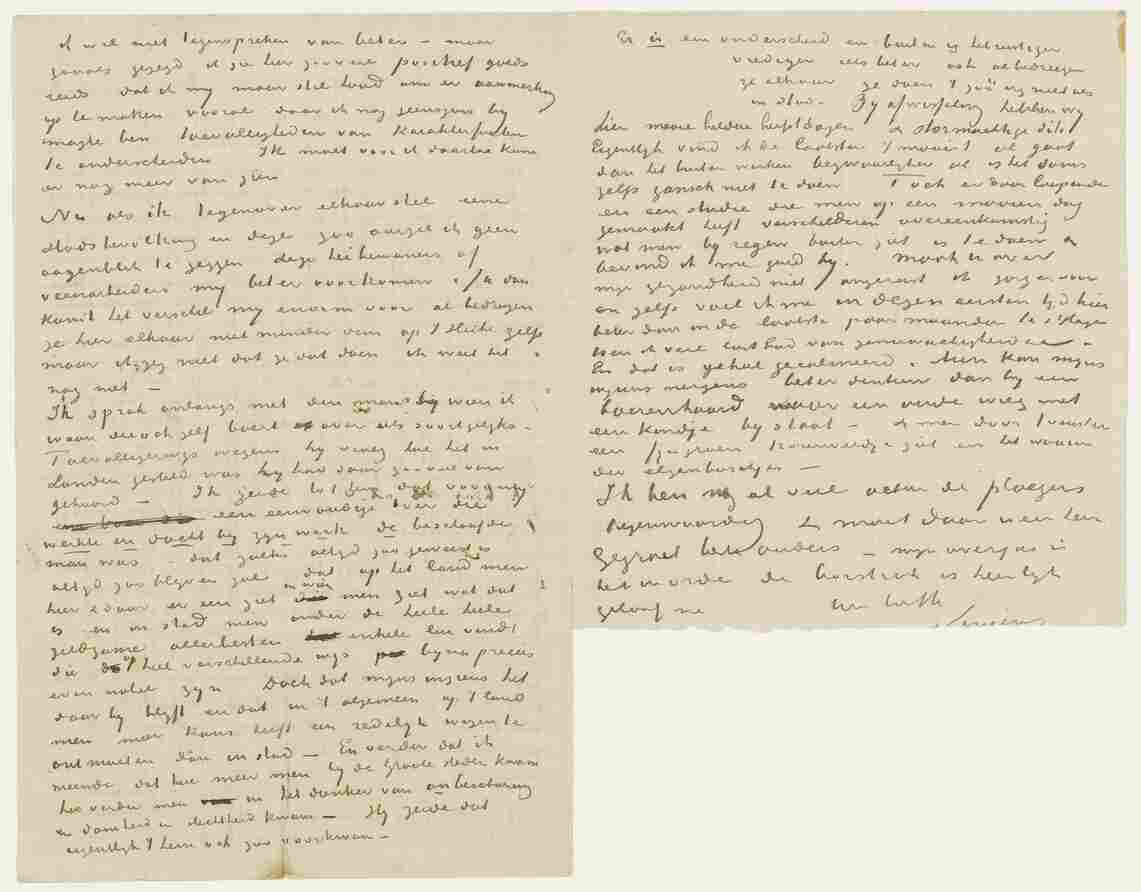 ik wil niet tegenspreken van beter – maar
gezegd ik zie hier zooveel positief goeds
reeds dat ik my maar stil houd om er aanmerking
op te maken vooral daar ik nog geenszins by
magte ben toevalligheden van karakterfouten
te onderscheiden Ik moet voor ik daartoe kom
er nog meer van zien
Nu als ik tegenover elkaar stel eene
stadsbevolking en deze zoo aarzel ik geen
oogenblik te zeggen deze heibewoners of
veenarbeiders my beter voorkomen. dan
komt het verschil my enorm voor al bedriegen
ze hier elkaar niet minder dan op 't zelfs
maar ik zeg niet dat ze dat doen ik weet het
nog niet –
Ik sprak onlangs met den man by wien ik
woon die ook zelf boert over iets soortgelyks –
Toevalligerwys wegens hy vroeg hoe het in
Londen gesteld was hy had daar zooveel van
gehoord – Ik zeide tot hem dat
een eenvoudige boer die
werkte en dacht by zyn werk de beschaafde
man was – dat zulks altyd zoo geweest is
altyd zoo blyven zal dat op het land men
hier & daar er een ziet men ziet wat dat
is – en in stad men onder de heele heele
zeldzame allerbesten enkele lui vindt
die op 't heel verschillende wys byna precies
even nobel zyn Doch dat myns inziens het
daarby blyft en dat in 't algemeen op 't land
men meer kans heeft een redelyk wezen te
ontmoeten dan in stad – En verder dat ik
meende dat hoe meer men by de groote steden kwam
hoe verder men in het donker van onbeschaving
en domheid & slechtheid kwam – Hy zeide dat
eigentlyk 't hem ook zoo voorkwam –
Er is een onderscheid en buiten is het rustiger
vrediger iets beter ook al bedriegen
ze elkaar ze doen 't juist nog niet als
in stad. By afwisseling hebben wy
hier mooie heldere herfstdagen & stormachtige dito
Eigentlyk vind ik de laatsten 't mooist al gaat
dan het buiten werken bezwaarlyker al is het soms
zelfs gansch niet te doen Toch er door loopende
en een studie die men op een mooien dag
gemaakt heeft verschilderen overeenkomstig
wat men by regen buiten ziet is te doen &
bevond ik me goed by. Maak u over
myn gezondheid niet ongerust ik zorg er voor
en zelfs voel ik me in dezen eersten tyd hier
beter dan in de laatste paar maanden te s'Hage
toen ik veel last had van zenuwachtigheid enz. –
En dat is geheel gecalmeerd. Men kan myns
inziens nergens beter denken dan by een
boerenhaard waar een oude wieg met
een kindje by staat – & men door 't venster
een groen korenveldje ziet en het waaien
der elzenboschjes –
Ik ben nog al veel achter de ploegers
tegenwoordig & moet daar weer heen
Gegroet beste ouders – myn overjas is
het in orde de borstrok is heerlyk
geloof me
Uw liefh
Vincent